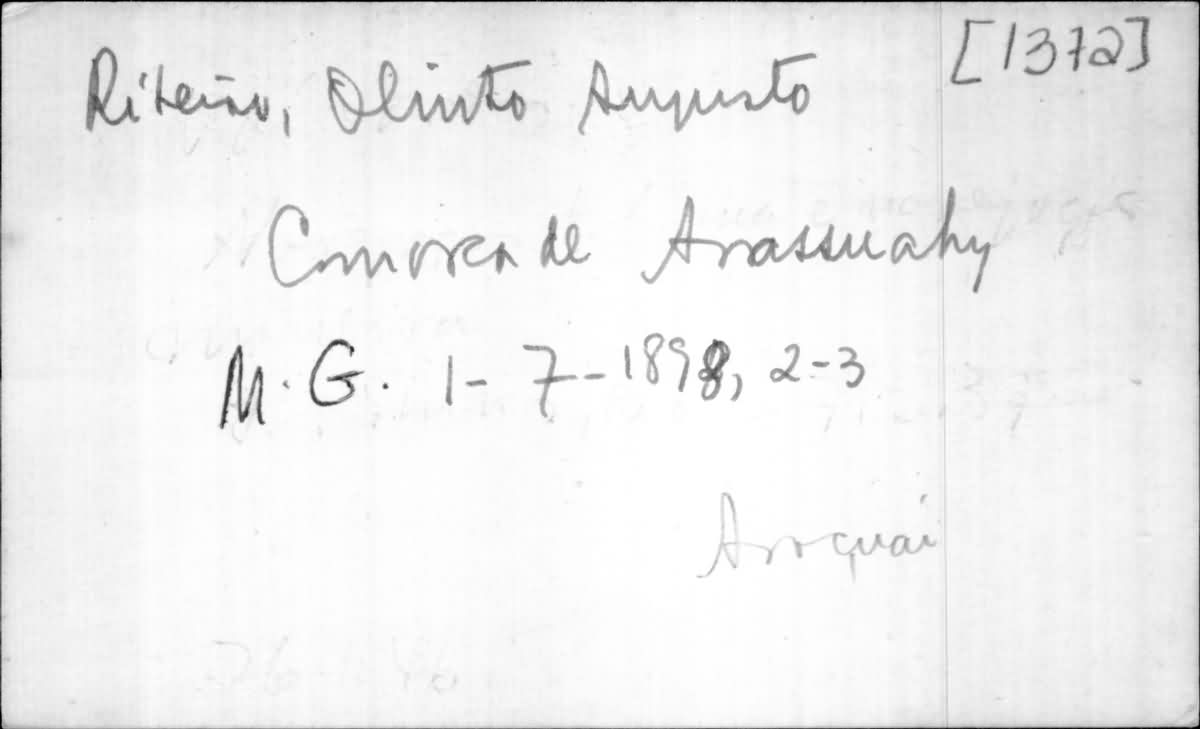 [1372]
Ribeiro, Olinto Augusto
Comarca de Arassuahy
M. G. 1-7-1898, 2-3
Araçuaí